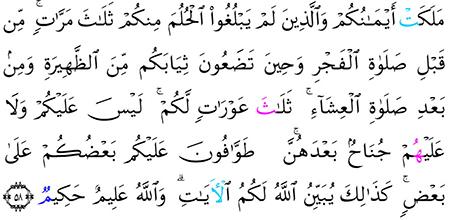 مَلَكَتْ أَيْمَـٰنُكُمْ وَٱلَّذِينَ لَمْ يَبْلُغُوا۟ ٱلْحُلُمَ مِنكُمْ ثَلَـٰثَ مَرَّٰتٍۢ ۚ مِّن
قَبْلِ صَلَوٰةِ ٱلْفَجْرِ وَحِينَ تَضَعُونَ ثِيَابَكُم مِّنَ ٱلظَّهِيرَةِ وَمِنۢ
بَعْدِ صَلَوٰةِ ٱلْعِشَآءِ ۚ ثَلَـٰثُ عَوْرَٰتٍۢ لَّكُمْ ۚ لَيْسَ عَلَيْكُمْ وَلَا
عَلَيْهِمْ جُنَاحٌۢ بَعْدَهُنَّ ۚ طَوَّٰفُونَ عَلَيْكُم بَعْضُكُمْ عَلَىٰ
بَعْضٍۢ ۚ كَذَٰلِكَ يُبَيِّنُ ٱللَّهُ لَكُمُ ٱلْـَٔايَـٰتِ ۗ وَٱللَّهُ عَلِيمٌ حَكِيمٌۭ ﴿٥٨﴾